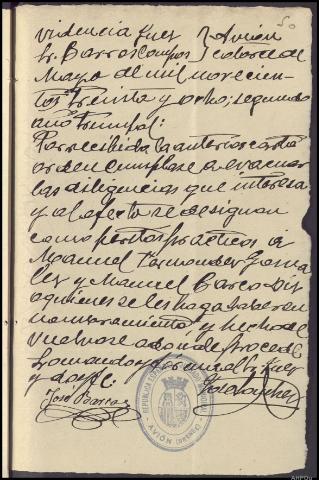 50
Providencia Juez } Avion
Sr. Barros Campos } catorce de
Mayo de mil novecien-
tos treinta y ocho; segundo
año triunfal:
Por recibida la anterior carta
orden cumplase o evacuar
las diligencias que interesa
y al efecto se designan
como peritos practicos a
Manuel Fernandez Gonza
lez y Manuel Barco
a quienes se les haga saber su
nombramiento, y hecho de-
vuelvase a donde procede
Lo mando y firma el Sr. Juez
y doy fe:
José Barros
AVIÓN (ORENSE)
AHPOu